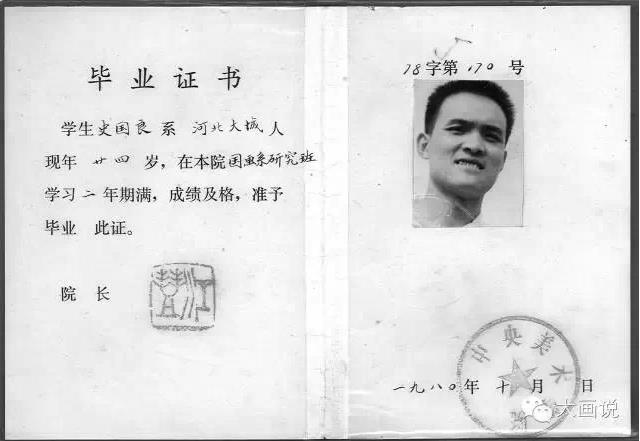 毕业证书
学生史国良系 河北大城人
现年 廿四 岁，在本院国画系研究班
学习二年期满，成绩及格，准予
毕业 此证。
院 长
78字第170号
中央美术
一九八〇年十月 日
大画说